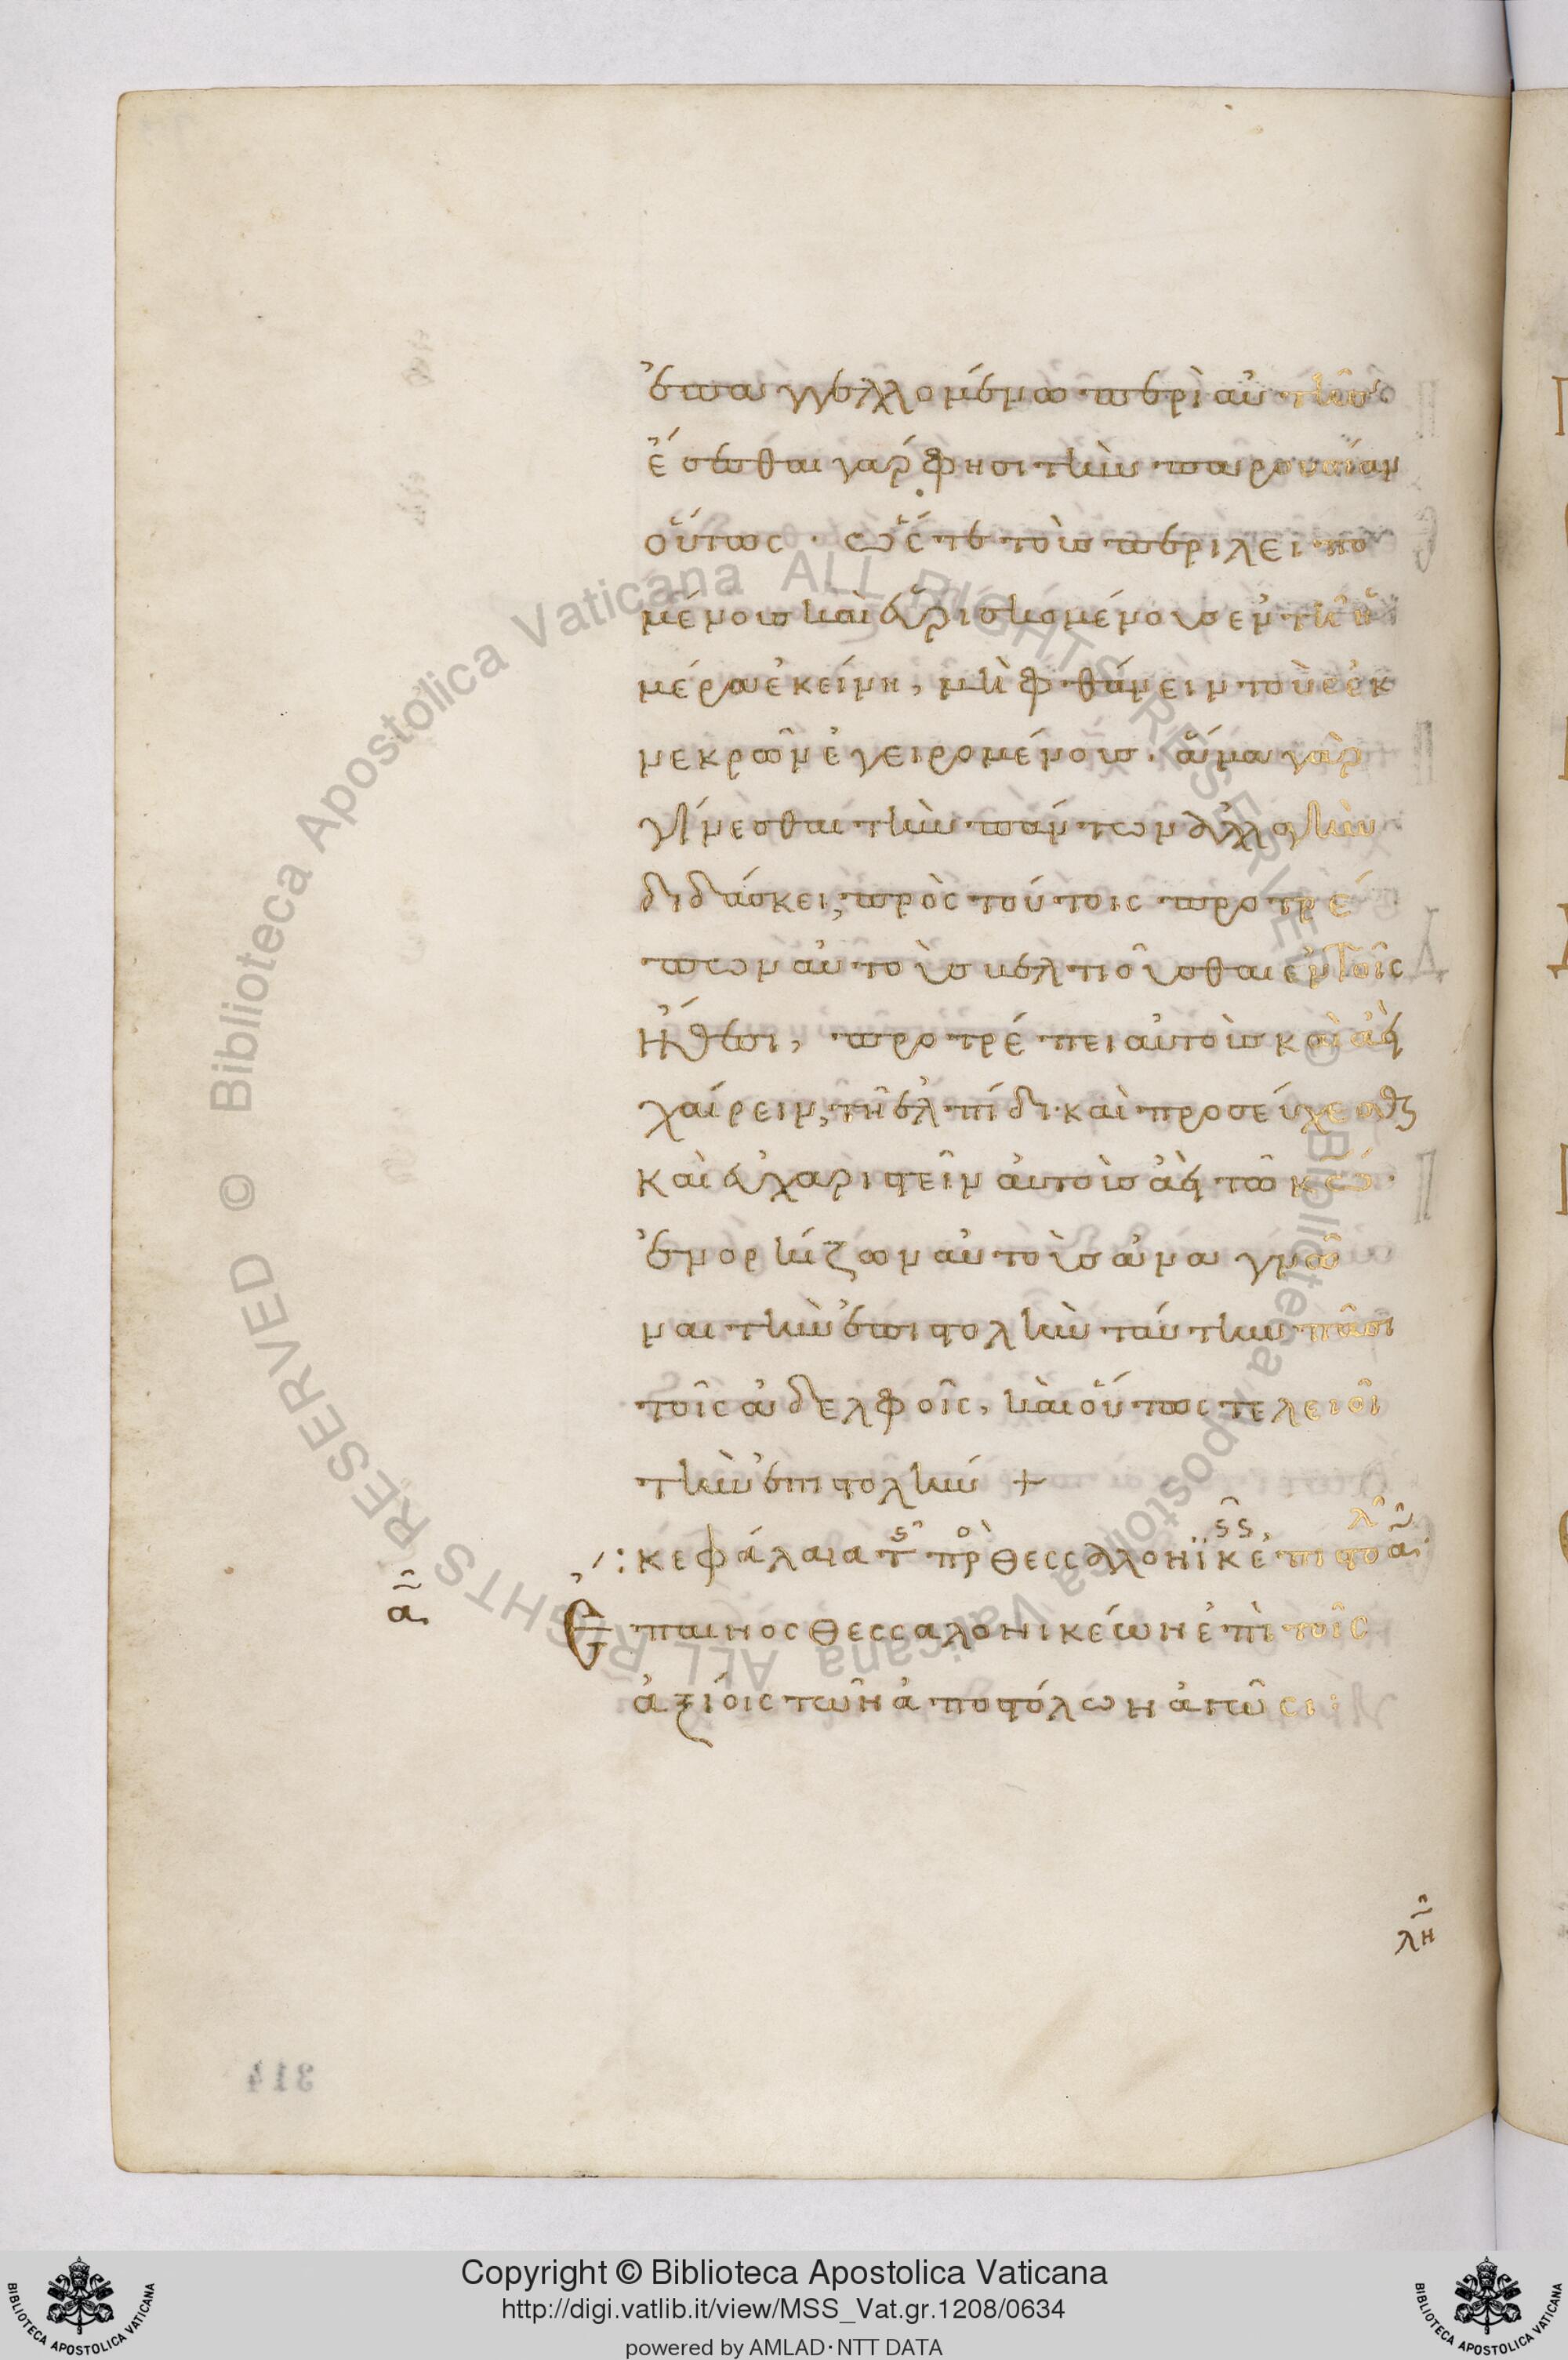 ἐπαγγελλομένω περὶ αὐτῆς·
ἔσεσθαι γάρ φησι τὴν παρουσίαν
οὕτως· ὥστε τοὺς περιλειπο
μένους καὶ εὑρισκομένους ἐν τῇ ἡ
μέρα ἐκείνη, μὴ φθάνειν τοὺς ἐκ
νεκρῶν ἐγειρομένους. ἅμα γὰρ
γίνεσθαι τὴν πάντων ἀλλαγὴν
διδάσκει, πρὸς τούτοις προτρέ
πων αὐτοὺς βελτιοῦσθαι ἐν τοῖς
ἤθεσι, προτρέπει αὐτοὺς καὶ ἀεὶ
χαίρειν, τῆ ἐλπίδι· καὶ προσεύχεσθαι
καὶ εὐχαριστεῖν αὐτοὺς ἀεὶ τῶ κῶ·
ἐνορκίζων αὐτοὺς ἀναγνῶ
ναι τὴν ἐπιστολὴν ταύτην πᾶσι
τοῖς ἀδελφοῖς, καὶ οὕτως τελειοῖ
τὴν ἐπιστολήν +
κεφάλαια τῆς πρὸς Θεσσαλονικεῖς ἐπιστολ α:
α Ἔπαινος Θεσσαλονικέων ἐπὶ τοῖς
ἀξίοις τῶν ἀποστόλων
λη
314
Copyright © Biblioteca Apostolica Vaticana
http://digi.vatlib.it/view/MSS_Vat.gr.1208/0634
powered by AMLAD·NTT DATA
BIBLIOTECA APOSTOLICA VATICANA
BIBLIOTECA APOSTOLICA VATICANA
© Biblioteca Apostolica Vaticana ALL RIGHTS RESERVED
© Biblioteca Apostolica Vaticana ALL RIGHTS RESERVED